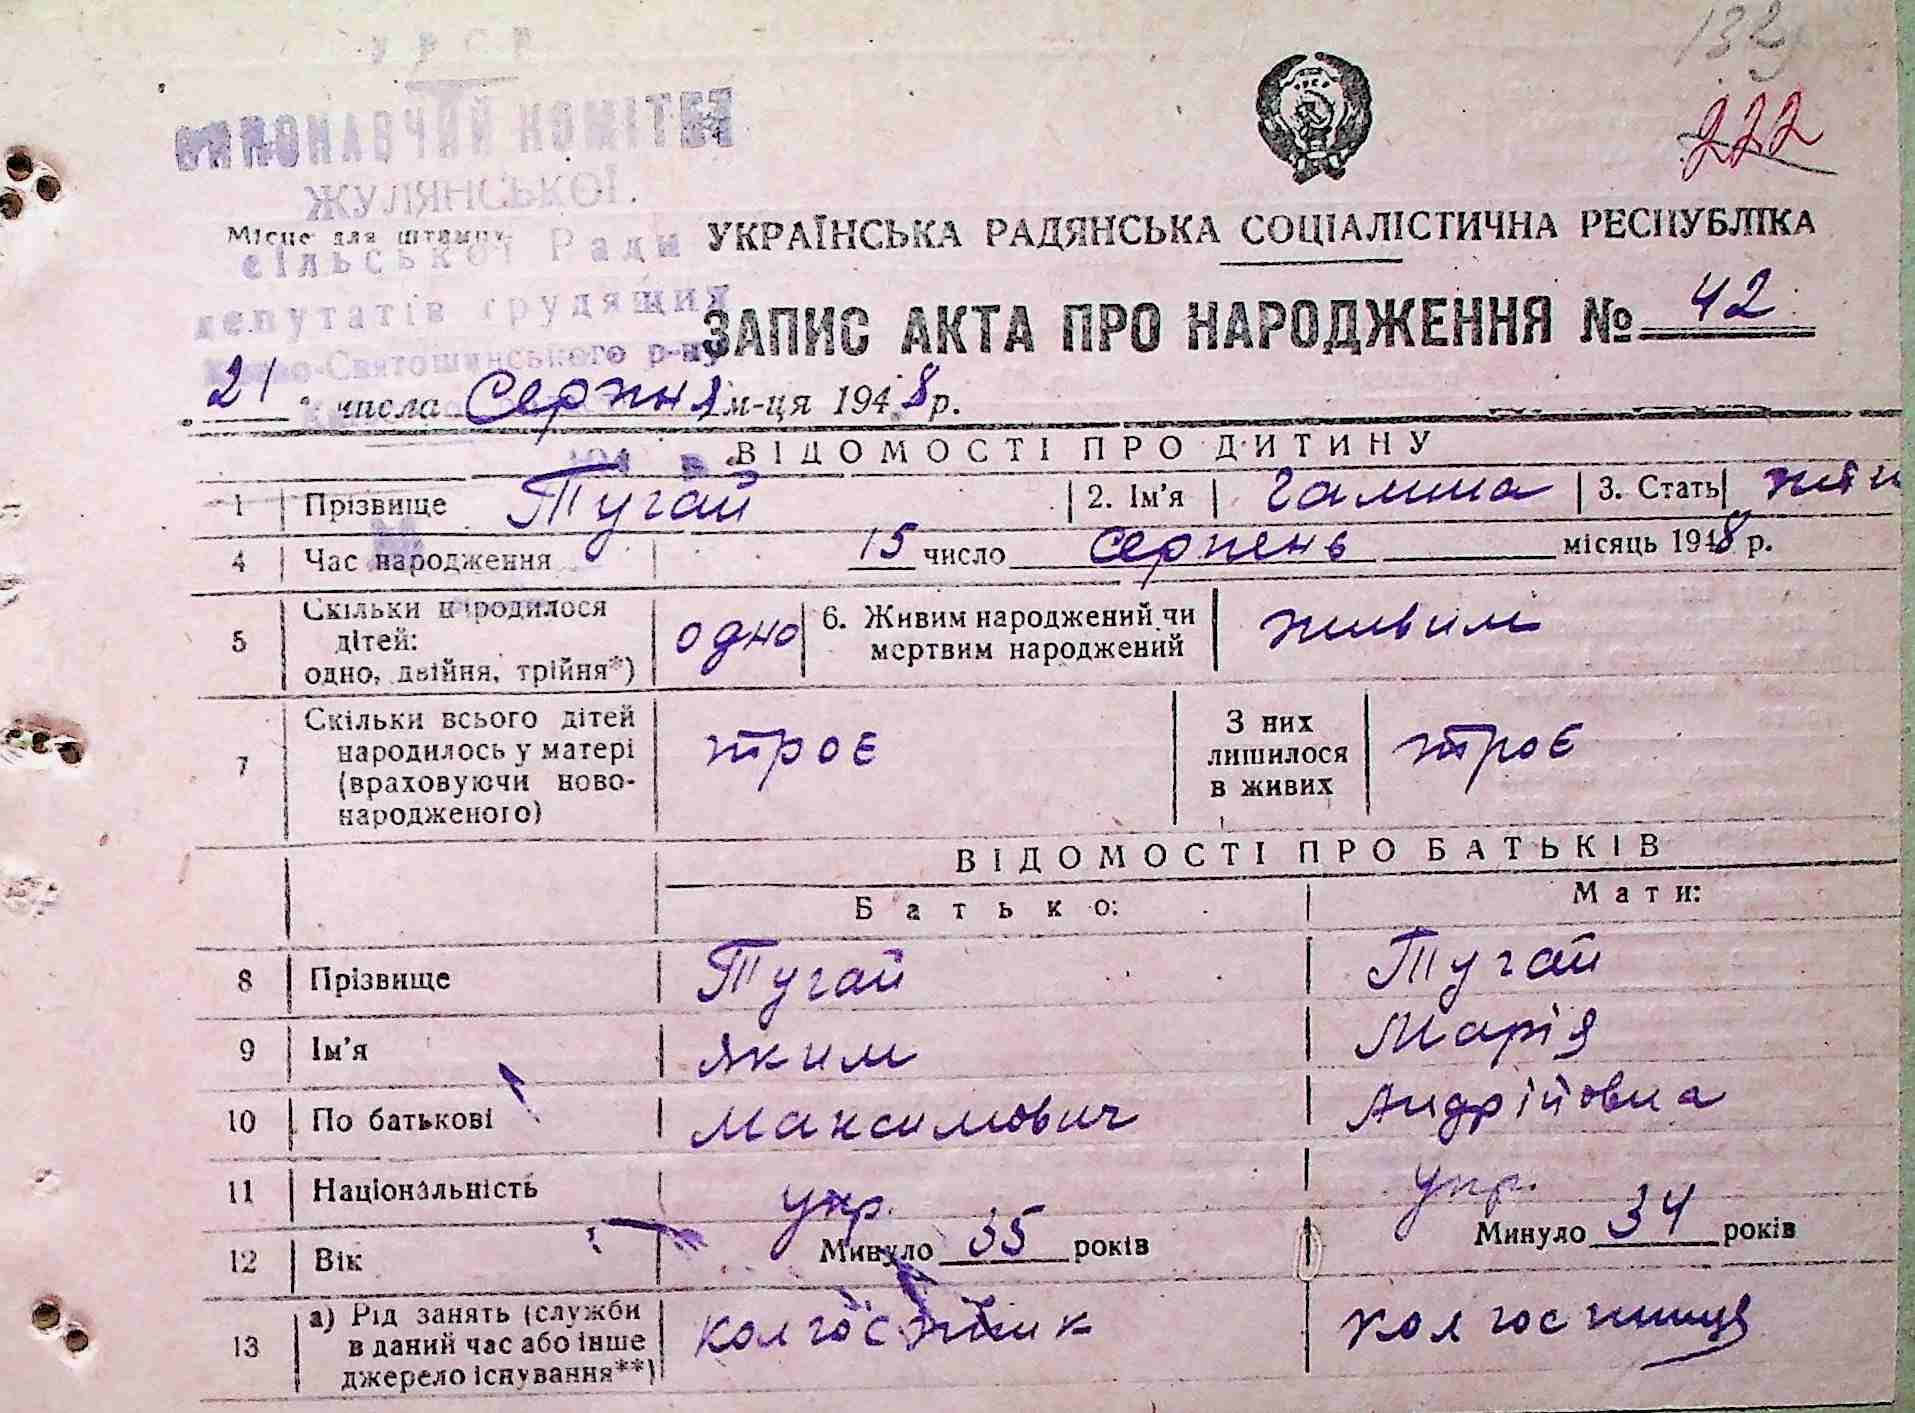 УРСР
132
ВИКОНАВЧИЙ КОМІТЕТ
222
ЖУЛЯНСЬКОЇ
Місце для штампу
сільської Ради
УКРАЇНСЬКА РАДЯНСЬКА СОЦІАЛІСТИЧНА РЕСПУБЛІКА
депутатів трудящих
ЗАПИС АКТА ПРО НАРОДЖЕННЯ № 42
Києво-Святошинського р-ну
21 числа Серпня м-ця 1948 р.
194 р.
ВІДОМОСТІ ПРО ДИТИНУ
1 Прізвище Тугай 2. Ім'я Галина 3. Стать жін
4 Час народження 15 число серпень місяць 1948 р.
5 Скільки народилося дітей: одно, двійня, трійня*) одно 6. Живим народжений чи мертвим народжений живим
7 Скільки всього дітей народилось у матері (враховуючи новонародженого) троє З них лишилося в живих троє
ВІДОМОСТІ ПРО БАТЬКІВ
Батько: Мати:
8 Прізвище Тугай Тугай
9 Ім'я Яким Марія
10 По батькові Максимович Андрійовна
11 Національність укр. укр.
12 Вік Минуло 35 років Минуло 34 років
13 а) Рід занять (служби в даний час або інше джерело існування**) колгоспник колгоспниця